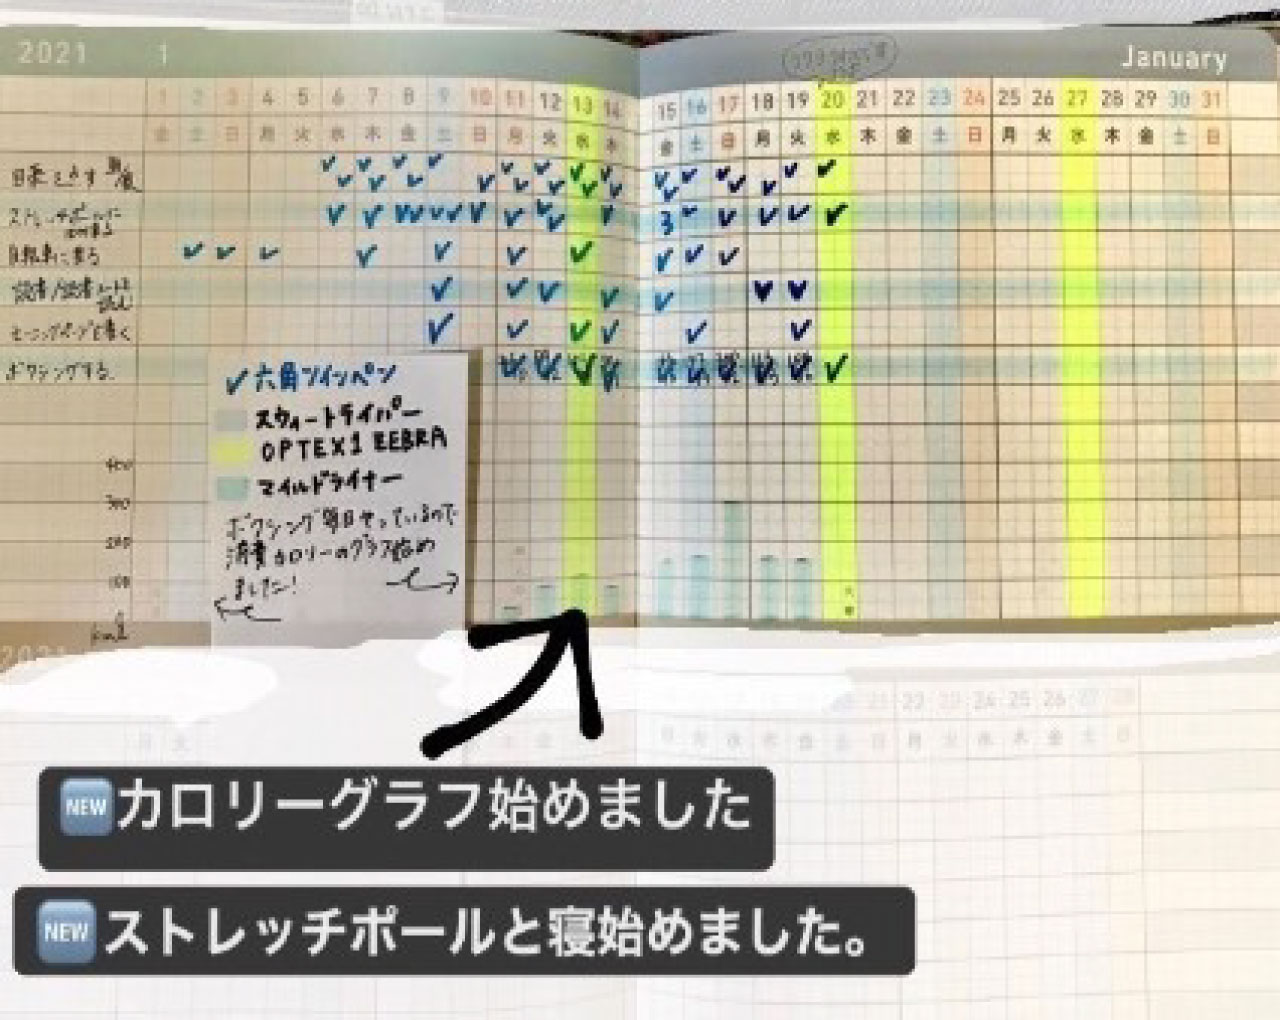 2021 1 January
1 2 3 4 5 6 7 8 9 10 11 12 13 14 15 16 17 18 19 20 21 22 23 24 25 26 27 28 29 30 31
金 土 日 月 火 水 木 金 土 日 月 火 水 木 金 土 日 月 火 水 木 金 土 日 月 火 水 木 金 土 日
自転車に乗る
モーニングページを書く
ボクシングする
六角ツインペン
スウィートライバー
OPTEX1 ZEBRA
マイルドライナー
ボクシング毎日やっているので
消費カロリーのグラフ始め
ました!
400
300
200
100
kcal
2021
21 22 23 24 25 26 27 28
NEW カロリーグラフ始めました
NEW ストレッチポールと寝始めました。